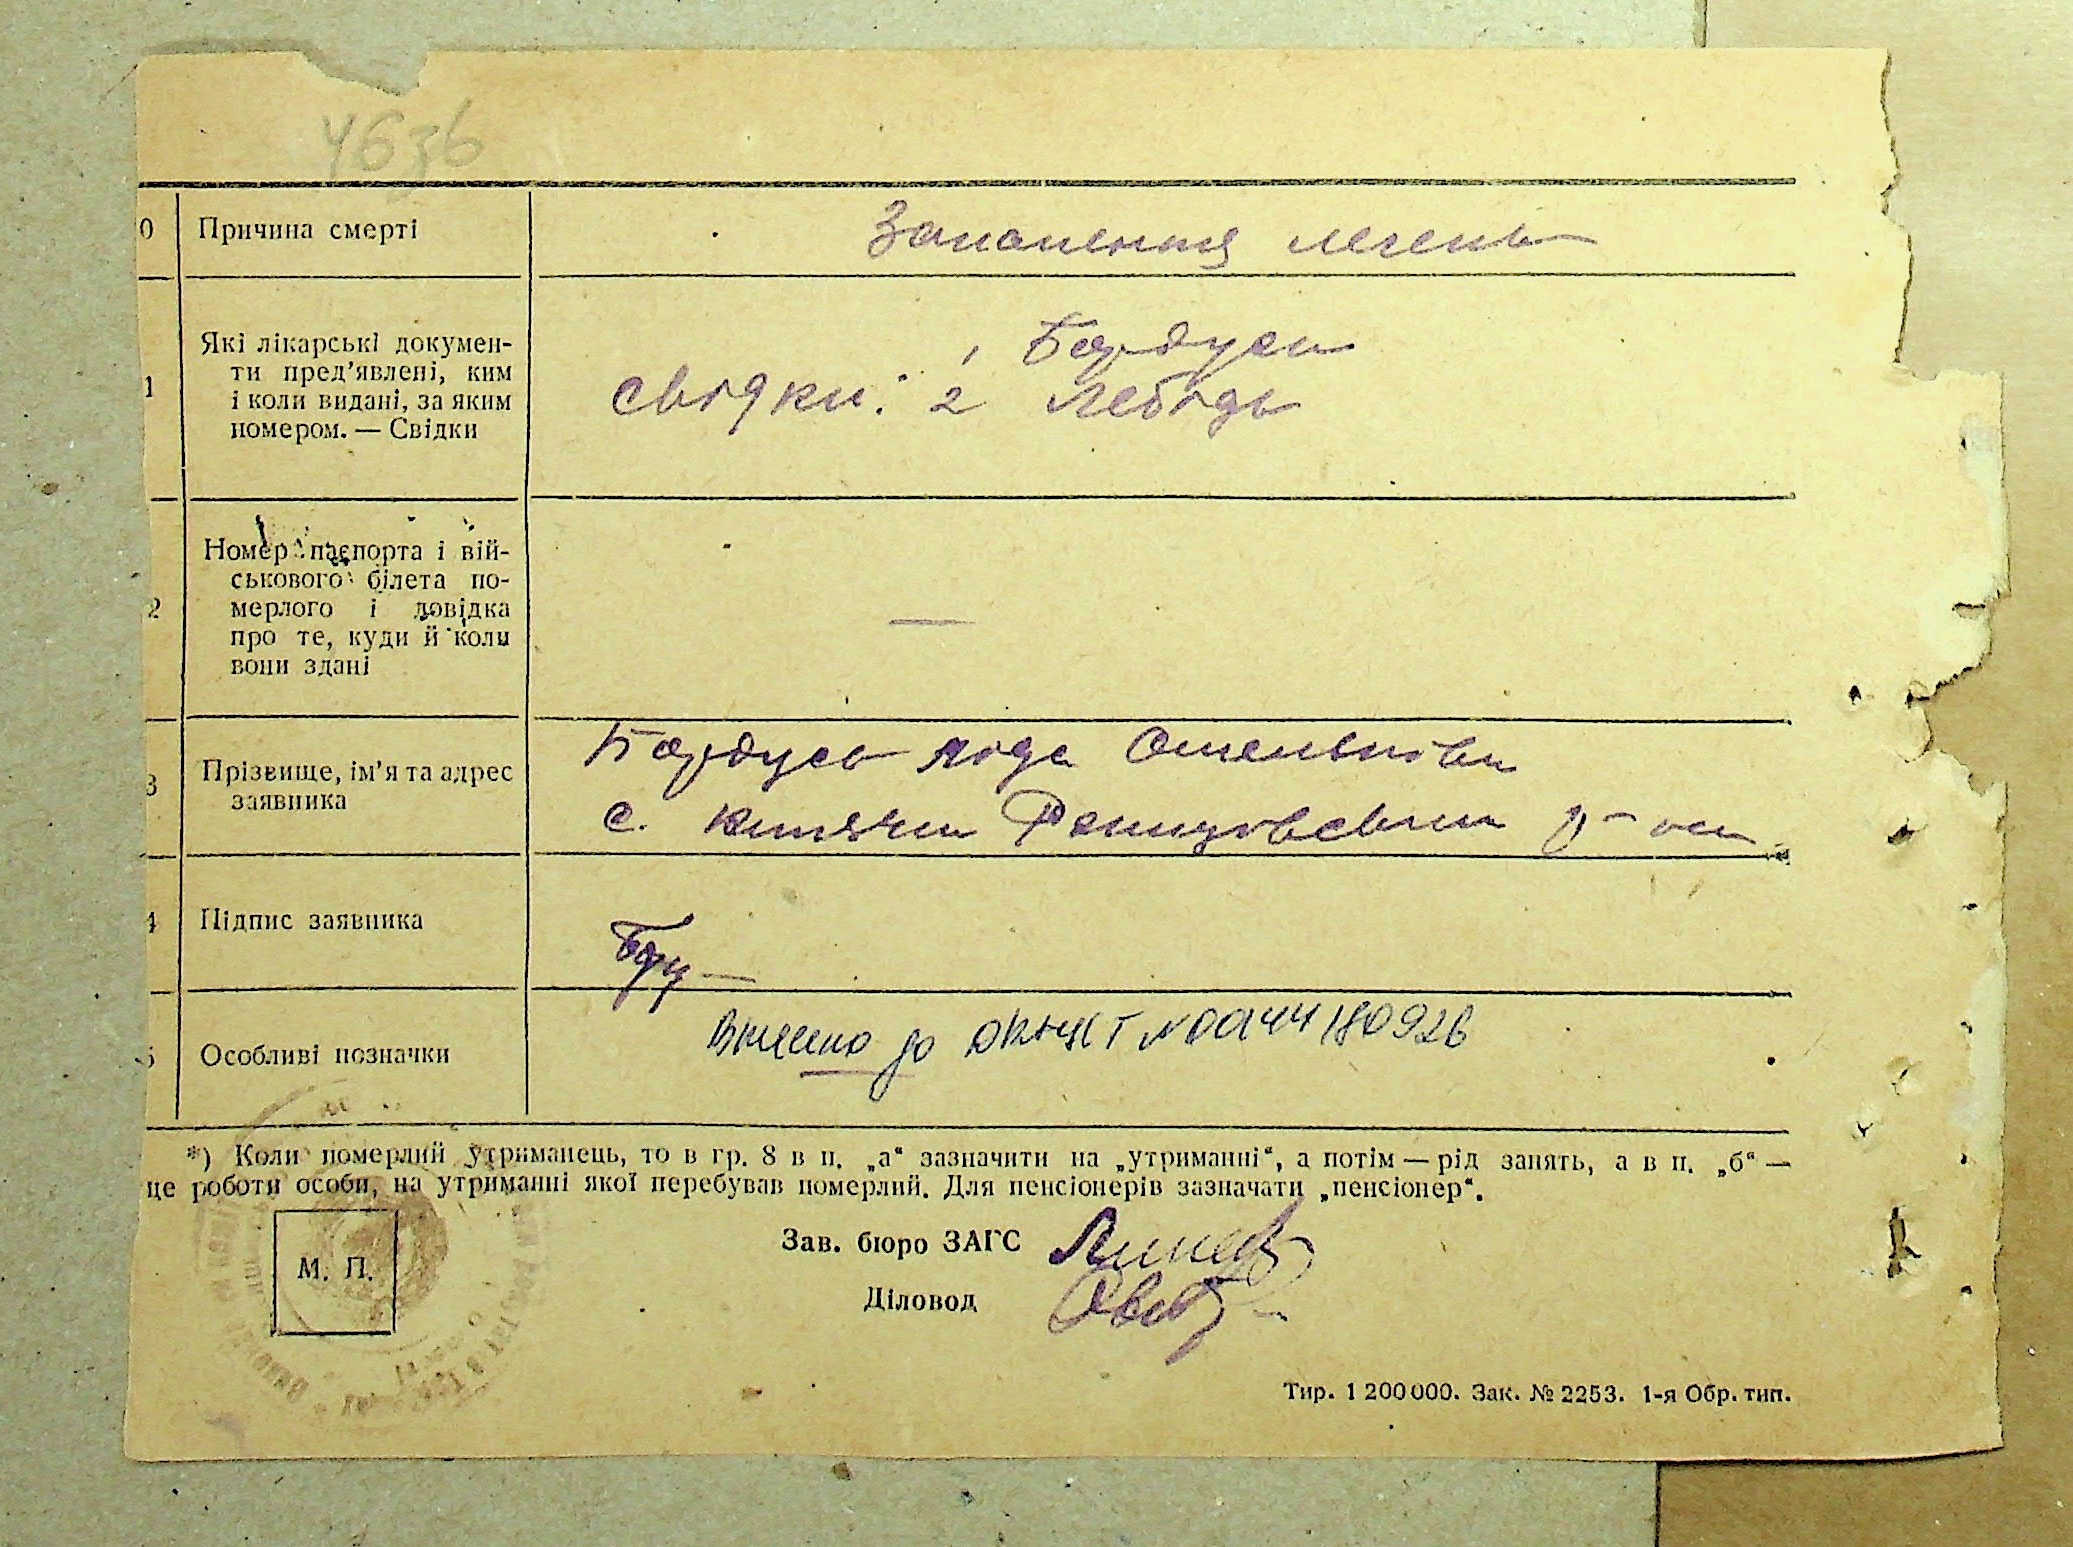 4636
0 Причина смерті Запалення легень
1 Які лікарські докумен-
ти пред’явлені, ким
і коли видані, за яким
номером. — Свідки
1 Бардусь
свідки: 2 Лебідь
2 Номер паспорта і вій-
ськового білета по-
мерлого і довідка
про те, куди й коли
вони здані
—
3 Прізвище, ім’я та адрес
заявника
Бардусь Ліда Омельянівна
с. Княжа р-на
4 Підпис заявника
5 Особливі позначки
Внесено до ДРАЦСГ № 00144180926
*) Коли померлий утриманець, то в гр. 8 в п. „а“ зазначити на „утриманні“, а потім — рід занять, а в п. „б“ —
це роботи особи, на утриманні якої перебував померлий. Для пенсіонерів зазначати „пенсіонер“.
М. П.
Зав. бюро ЗАГС
Діловод
Тир. 1 200 000. Зак. № 2253. 1-я Обр. тип.